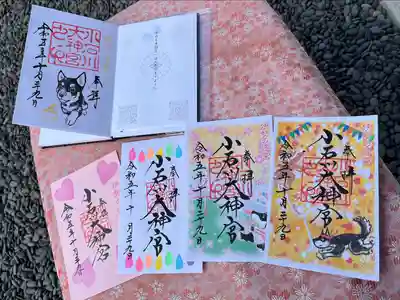 奉拝
小石川
大神宮
令和五年十月二十九日
奉拝
小石川大神宮
令和五年十月二十九日
奉拝
小石川大神宮
令和五年十月二十九日
奉拝
小石川大神宮
令和五年十月二十九日
奉拝
小石川大神宮
令和五年十月二十九日